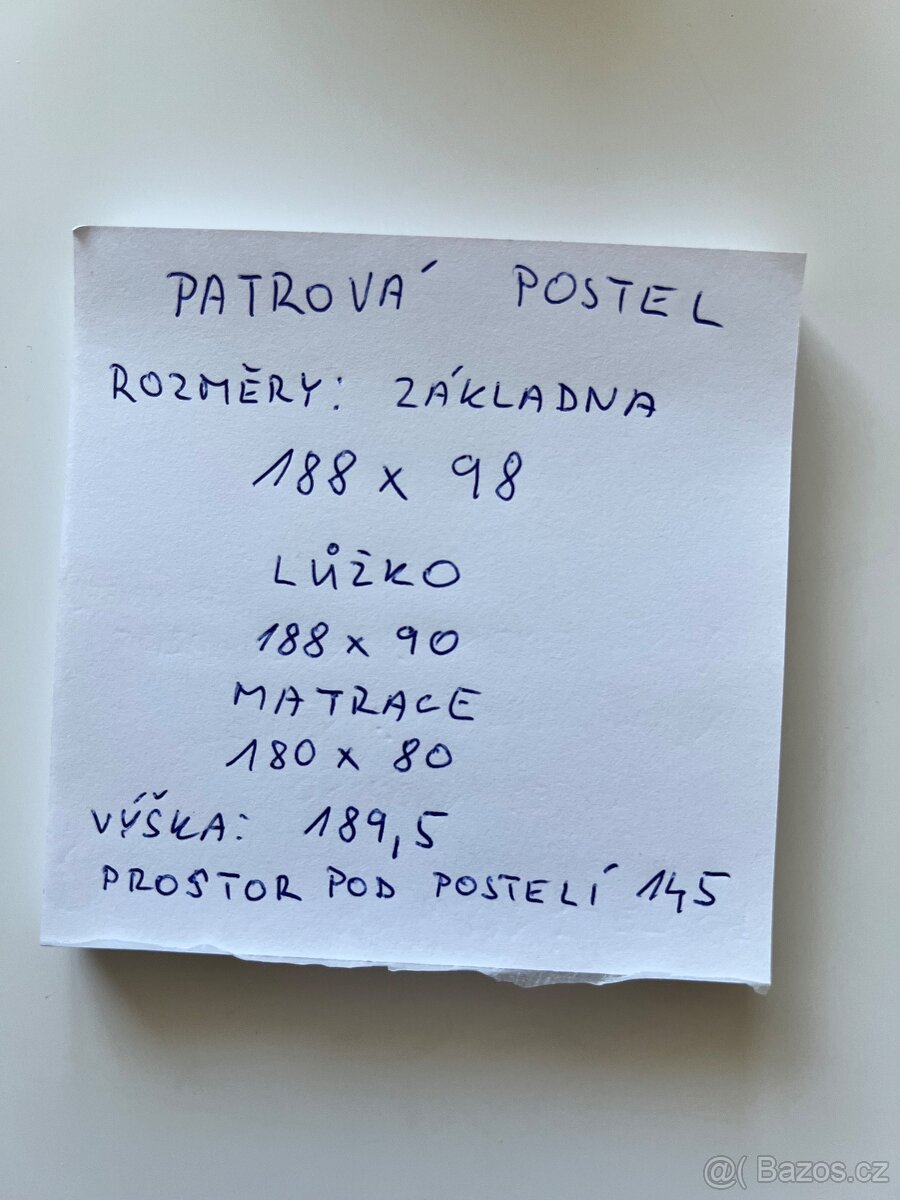 PATROVÁ POSTEL
ROZMĚRY: ZÁKLADNA
188 x 98
LŮŽKO
188 x 90
MATRACE
180 x 80
VÝŠKA: 189,5
PROSTOR POD POSTELÍ 145
@( Bazos.cz